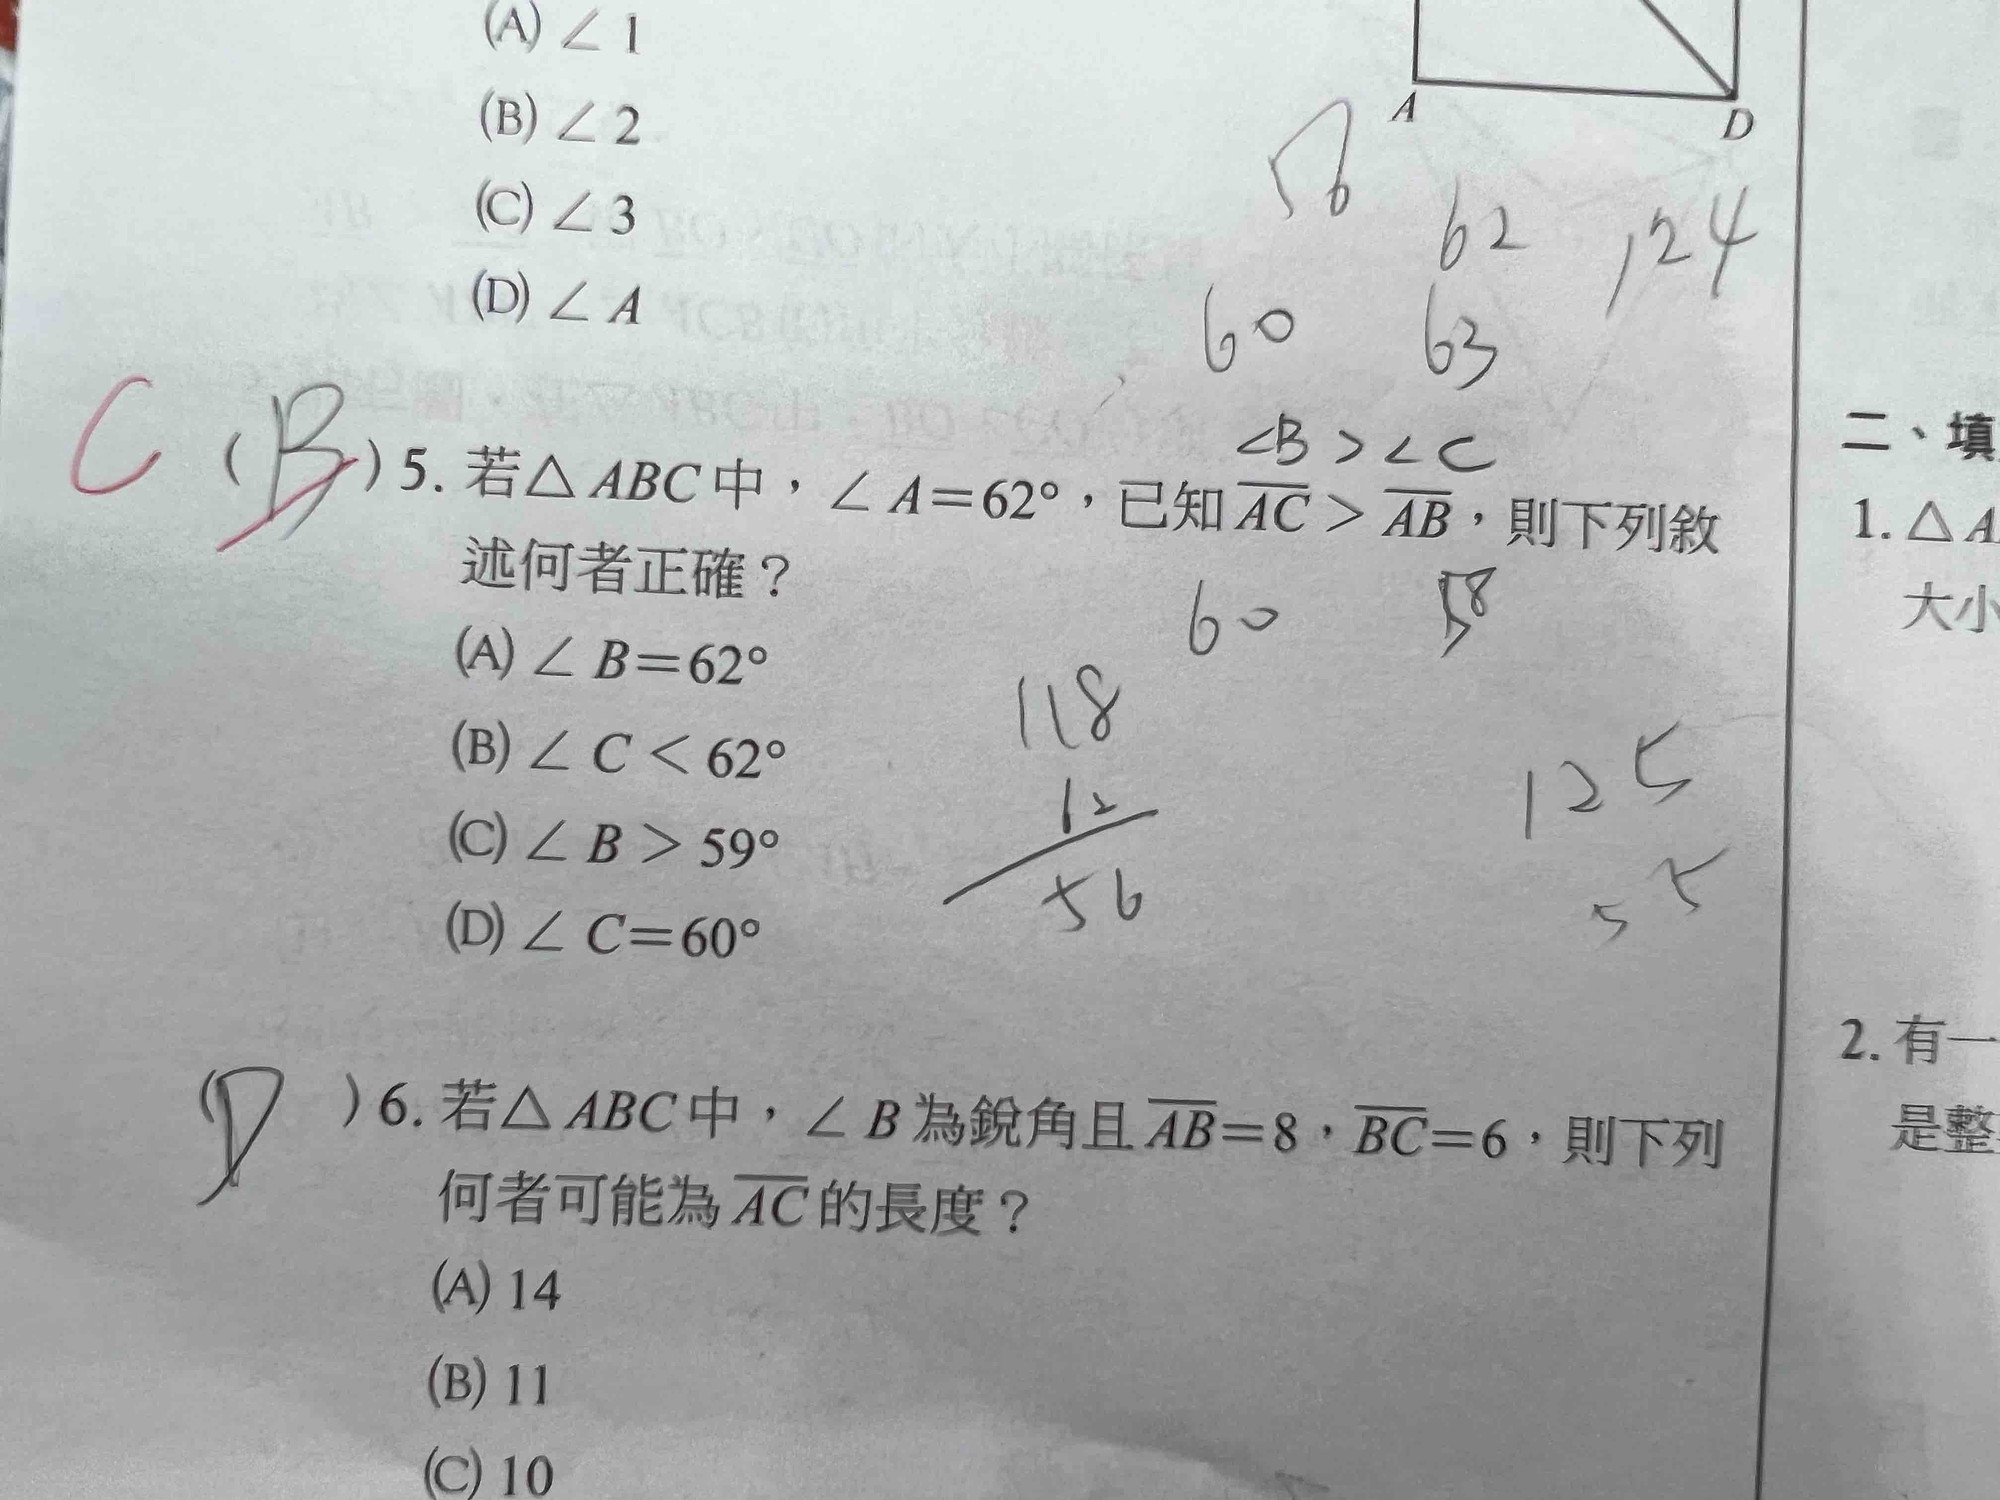 (A) ∠1
(B) ∠2
(C) ∠3
(D) ∠A
A
D
56
62
124
60
63
∠B > ∠C
C
(B) 5. 若△ABC中，∠A=62°，已知AC > AB，則下列敘
述何者正確？
60
58
(A) ∠B=62°
(B) ∠C < 62°
(C) ∠B > 59°
(D) ∠C=60°
118
12
56
125
55
(D) 6. 若△ABC中，∠B為銳角且AB=8，BC=6，則下列
何者可能為AC的長度？
(A) 14
(B) 11
(C) 10
二、填
1. △A
大小
2. 有一
是整